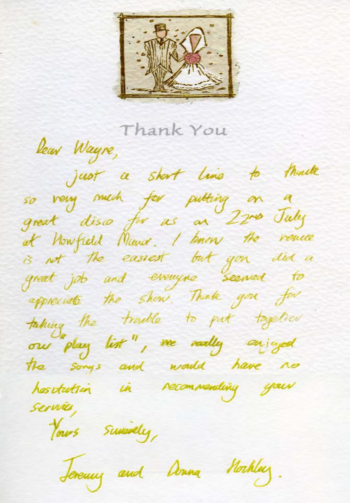 Thank You
Dear Wayne,
just a short line to thank
so very much for putting on a
great disco for us on 22nd July
at Howfield Manor. I know the venue
is not the easiest but you did a
great job and everyone seemed to
appreciate the show. Thank you for
taking the trouble to put together
our "play list", we really enjoyed
the songs and would have no
hesitation in recommending your
service,
Yours sincerely,
Jeremy and Donna